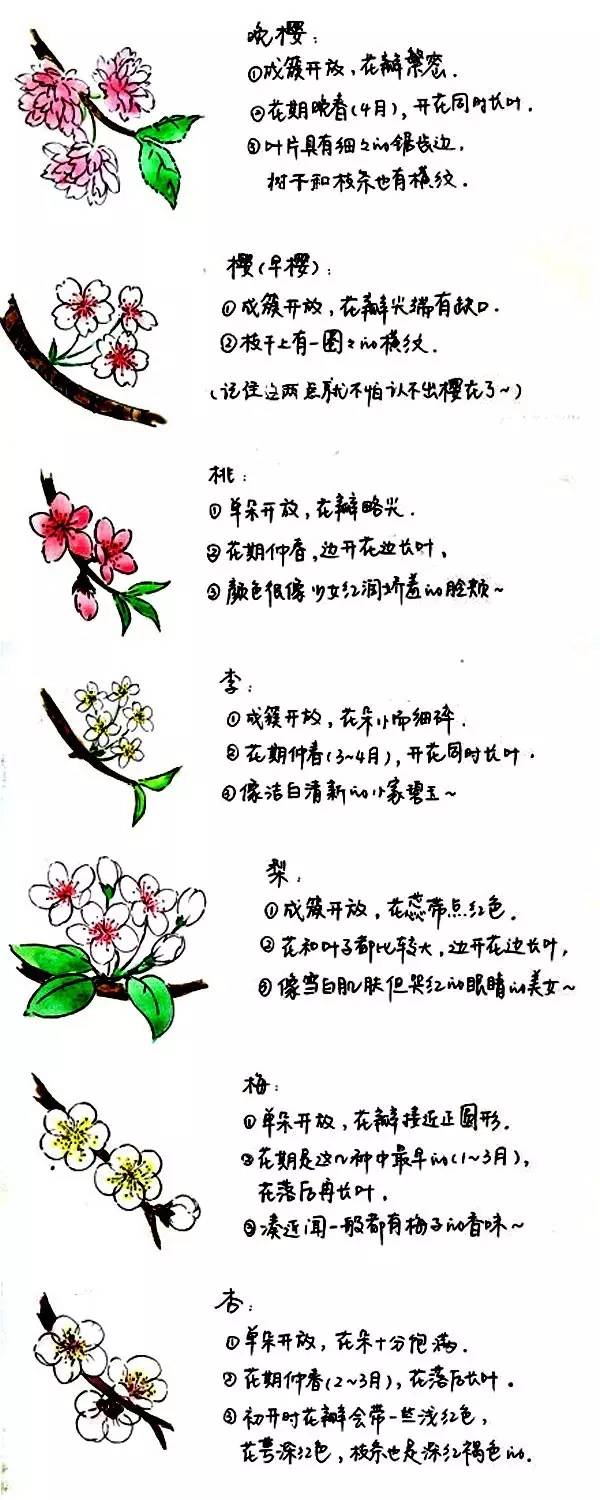 晚樱:
①成簇开放,花瓣繁密.
②花期晚春(4月),开花同时长叶.
③叶片具有细々的锯齿边,
树干和枝条也有横纹.
樱(早樱):
①成簇开放,花瓣尖端有缺口.
②枝干上有一圈々的横纹.
(记住这两点就不怕认不出樱花了~)
桃:
①单朵开放,花瓣略尖.
②花期仲春,边开花边长叶,
③颜色很像少女红润娇羞的脸颊~
李:
①成簇开放,花朵小而细碎.
②花期仲春(3~4月),开花同时长叶.
③像洁白清新的小家碧玉~
梨:
①成簇开放,花蕊带点红色.
②花和叶子都比较大,边开花边长叶,
③像雪白肌肤但哭红的眼睛的美女~
梅:
①单朵开放,花瓣接近正圆形.
②花期是这几种中最早的(1~3月),
花落后再长叶.
③凑近闻一般都有梅子的香味~
杏:
①单朵开放,花朵十分饱满.
②花期仲春(2~3月),花落后长叶.
③初开时花瓣会带一些浅红色,
花萼深红色,枝条也是深红褐色的.